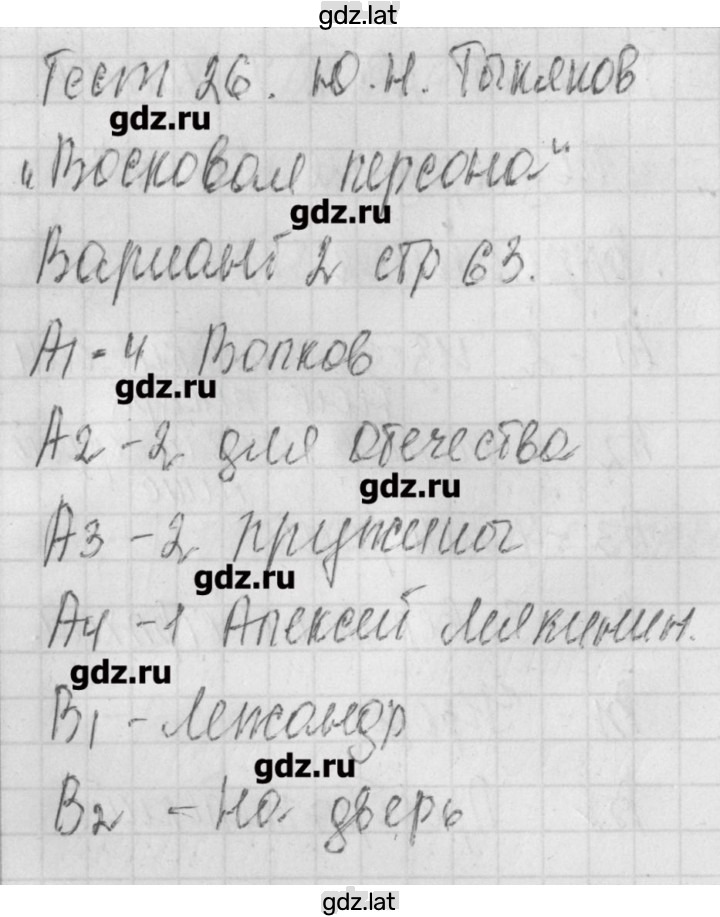 gdz.lat
Тест 26. Ю.Н. Тынянов
gdz.ru
"Восковая персона"
gdz.ru
Вариант 2 стр 63.
А1 - 4 Волков
gdz.ru
А2 - 2 для отечества
gdz.ru
А3 - 2 пружины
gdz.ru
А4 - 1 Алексей Мякинин.
gdz.ru
В1 - Лежандр
gdz.ru
В2 - На дверь
gdz.lat